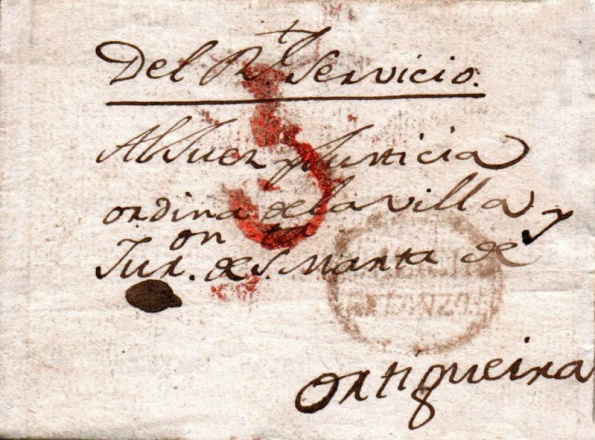 Del Rl. Servicio.
Al Juez y Justicia
ordina de la villa y
Jur.on de S.ta Marta de
Ortigueira
5